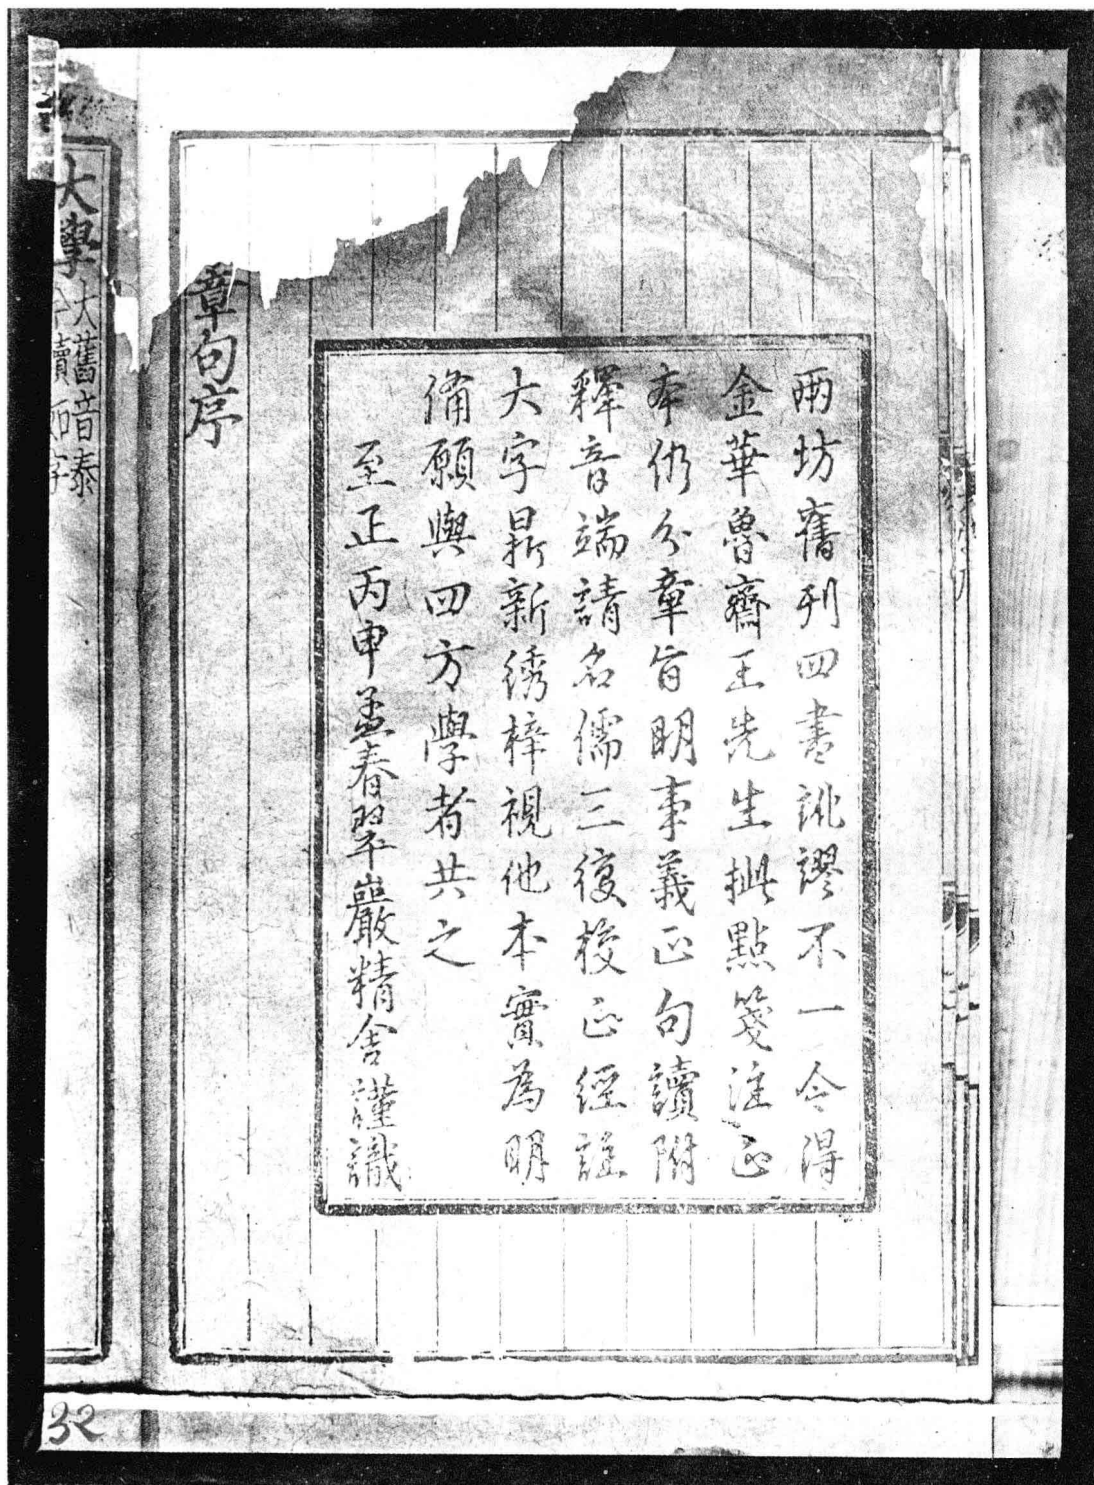 兩坊舊刊四書訛謬不一今得
金華魯齋王先生㨗點箋注正
本仍分章旨明事義正句讀附
釋音端請名儒三復校正經註
大字鼎新綉梓視他本實為明
備願與四方學者共之
至正丙申孟春翠巖精舍謹識
章句序
大學
大舊音泰
今讀如字
32